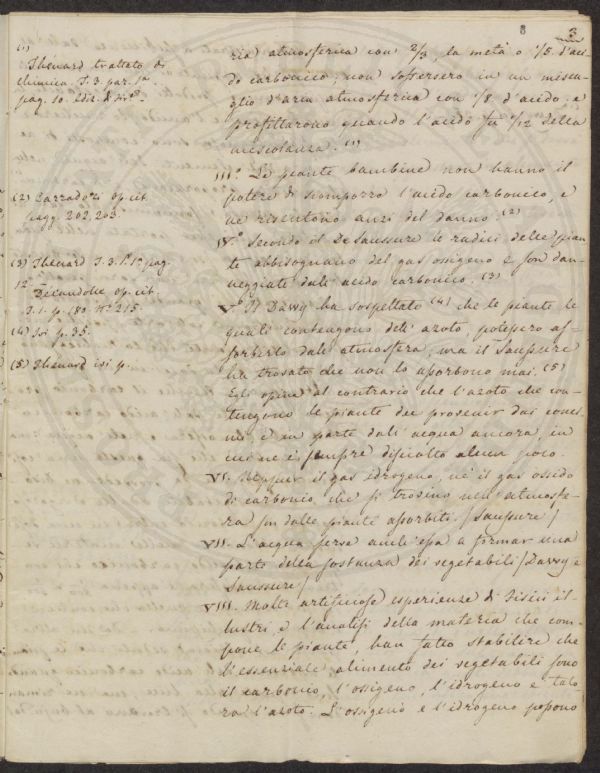 8 3
(1)
Thénard trattato di
chimica T. 3. par. 1a
pag. 10. Ediz.
(2) Carradori op. cit.
pagg. 202. 203.
(3) Thénard T. 3. P. 1a pag.
12
Decandolle op. cit.
T. 1. p. 180 N° 215.
(4) Ivi p. 35.
(5) Thénard ivi p.
ria atmosferica con 2/3, la metà o 1/5 d'aci-
do carbonico; non soffersero in un miscu-
glio d'aria atmosferica con 1/8 d'acido; e
profittarono quando l'acido fu 1/12 della
mescolanza. (1)
III.° Le piante bambine non hanno il
potere di scomporre l'acido carbonico, e
ne risentono anzi del danno. (2)
IV.° Secondo il De Saussure le radici delle pian-
te abbisognano del gas ossigeno e son dan-
neggiate dall'acido carbonico. (3)
V.° Il Davvy ha sospettato (4) che le piante le
quali contengono dell'azoto potessero as-
sorbirlo dall'atmosfera, ma il Saussure
ha trovato che non lo assorbono mai. (5)
Egli opina al contrario che l'azoto che con-
tengono le piante dee provenir dai conci-
mi, e in parte dall'acqua ancora, in
cui ne è sempre disciolto alcun poco.
VI. Neppur il gas idrogeno, nè il gas ossido
di carbonio, che si trovino nell'atmosfe-
ra son dalle piante assorbiti. /Saussure/
VII. L'acqua serve anch'essa a formar una
parte della sostanza dei vegetabili /Davvy e
Saussure/
VIII. Molte artifiziose esperienze di Fisici il-
lustri e l'analisi della materia che com-
pone le piante, han fatto stabilire che
l'essenziale alimento dei vegetabili sono
il carbonio, l'ossigeno, l'idrogeno e talo-
ra l'azoto. L'ossigeno e l'idrogeno possono